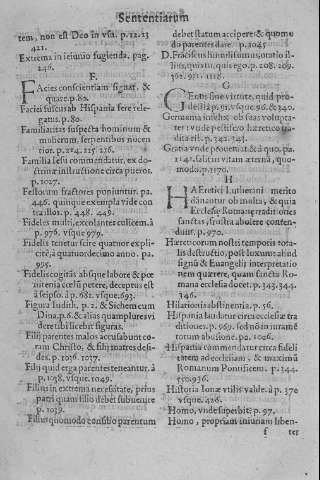 Sententiarum
tem, non est Deo in vsu. p. 12. 13
421.
Extrema in ieiunio fugienda, pag.
246.
F.
FAcies conscientiam signat, &
quare. p. 80.
Facies suscurab Hispania sere rele-
gatus. p. 80.
Familiaritas suspecta hominum &
mulierum, serpentibus nocen
tior. p. 224. 225 226.
Familia Iesu commendatur, ex do-
ctrinæ instructione circa pueros.
p. 1027.
Festorum fractores poniuntur. pa.
446. quinque exempla vide con
tra illos. p. 448. 449.
Fideles multi, excolantes culicem. à
p. 976. vsque 979.
Fidelis tenetur scire quatuor expli-
cité, à quatuordecimo anno. pa.
995.
Fidelis cogitãs absque labore & pœ
nitentia cœlũ petere, deceptus est
à seipso. à p. 682. vsque. 693.
Figura Iudith, p. 2. & Sichem cum
Dina, p. 6. & alias quamplures vi
dere tibi licebit figuras.
Filij parentes malos accusabunt co-
ram Christo, & filij matres desi-
des. p. 1036. 1037.
Filij quid erga parentes teneantur. à
p. 1038. vsque. 1049.
Filius in extrema necessitate, prius
patri quam filio debet subuenire
p. 1039.
Filius quomodo consilio parentum
debet statum accipere: & quomo
do parentes dare. p. 1045
D. Franciscus humilissimus, oratio il-
lius, quis tu, quis ego. p. 208. 209.
362. 921. 1118.
G
GEstus sine virtute, quid pro-
desset à p. 93. vsque 96. & 340.
Germania infelix ob suas volupta-
tes: vnde pestifero hæretico pa-
tuerit. p. 342. 343.
Gratia vnde proueniat & à quo. pa.
1142. salit in vitam æternã, quo-
modo. p. 1170.
H
HAEretici Lutherani merito
dãnantur ob multa, & quia
Ecclesiæ Romanæ traditiones
sanctas, & iustitia abolere conten-
dunt. p. 970.
Hæreticorum nostri temporis tota-
lis destructio, post luxum: aliud
signũ & Euangelij interpretatio
nem quærere, quam sancta Ro-
mana ecclesia docet. p. 343. 344.
346.
Hilarionis abstinentia. p. 56.
Hispania laudatur circa ecclesiæ tra
ditiones. p. 969. sed nõ in iuramẽ
torum abusione. pa. 1026.
Hispania commendatur circa fideli
tatem ad ecclesiam, & maximũ
Romanum Pontificem. p. 344.
550. 936.
Historia Ionæ vtilis valde. à p. 370
vsque. 426.
Homo, vnde superbit. p. 97.
Homo, propriam iniuriam liben-
f ter